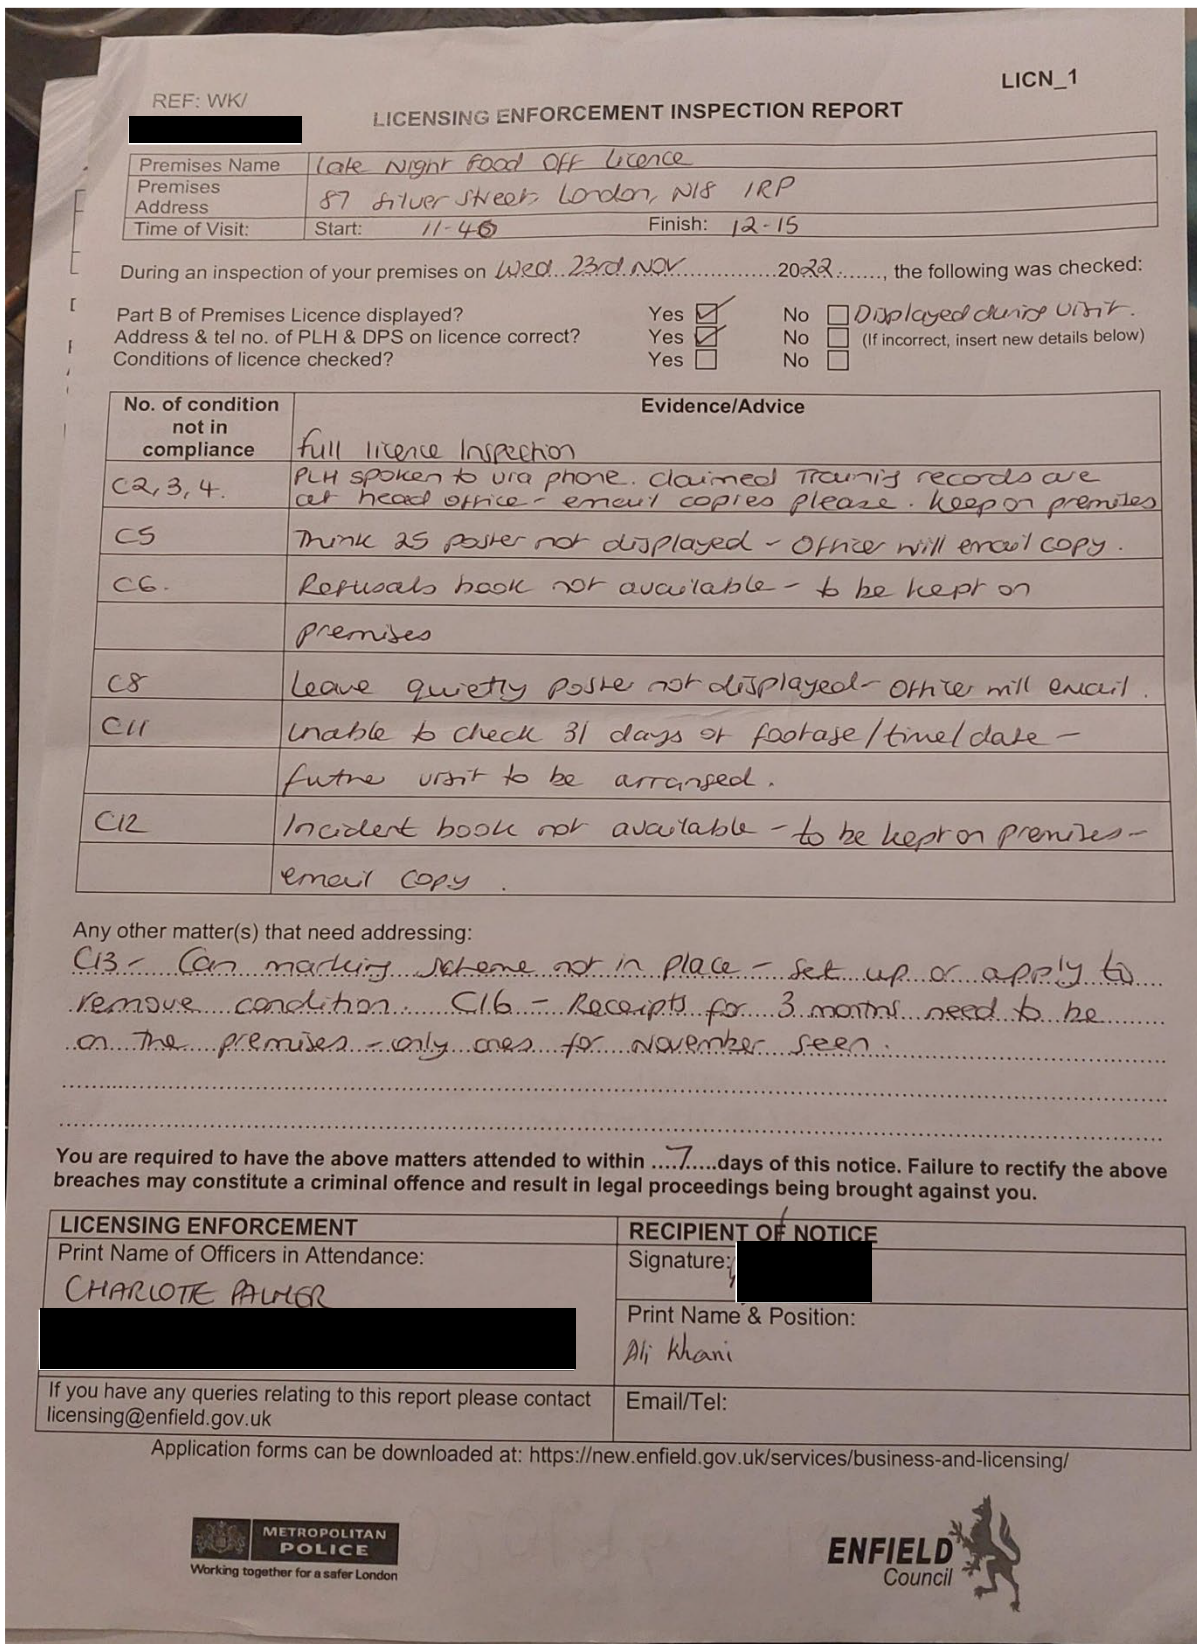 LICN_1
REF: WK/
LICENSING ENFORCEMENT INSPECTION REPORT
Premises Name Late Night Food Off Licence
Premises Address 87 Silver Street, London, N18 1RP
Time of Visit: Start: 11-40 Finish: 12-15
During an inspection of your premises on Wed 23rd Nov 2022, the following was checked:
Part B of Premises Licence displayed? Yes ☑ No ☐ Displayed during visit.
Address & tel no. of PLH & DPS on licence correct? Yes ☑ No ☐ (If incorrect, insert new details below)
Conditions of licence checked? Yes ☐ No ☐
No. of condition not in compliance Evidence/Advice
Full licence Inspection
C2, 3, 4. PLH spoken to via phone. claimed Training records are
at head office - email copies please. Keep on premises
C5 Think 25 poster not displayed - Officer will email copy.
C6. Refusals book not available - to be kept on
premises
C8 Leave quietly poster not displayed - Officer will email.
C11 Unable to check 31 days of footage/time/date -
future visit to be arranged.
C12 Incident book not available - to be kept on premises -
email copy.
Any other matter(s) that need addressing:
C13 - Can marking scheme not in place - set up or apply to
remove condition. C16 - Receipts for 3 months need to be
on the premises - only ones for November seen.
You are required to have the above matters attended to within ....7.....days of this notice. Failure to rectify the above
breaches may constitute a criminal offence and result in legal proceedings being brought against you.
LICENSING ENFORCEMENT
Print Name of Officers in Attendance:
CHARLOTTE PALMER
If you have any queries relating to this report please contact
licensing@enfield.gov.uk
RECIPIENT OF NOTICE
Signature:
Print Name & Position:
Ali Khani
Email/Tel:
Application forms can be downloaded at: https://new.enfield.gov.uk/services/business-and-licensing/
METROPOLITAN
POLICE
Working together for a safer London
ENFIELD
Council